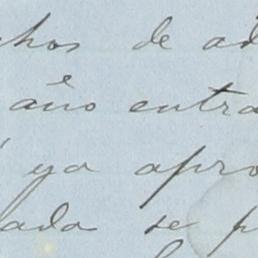 chos de ad
año entra
ya apro
ada se p